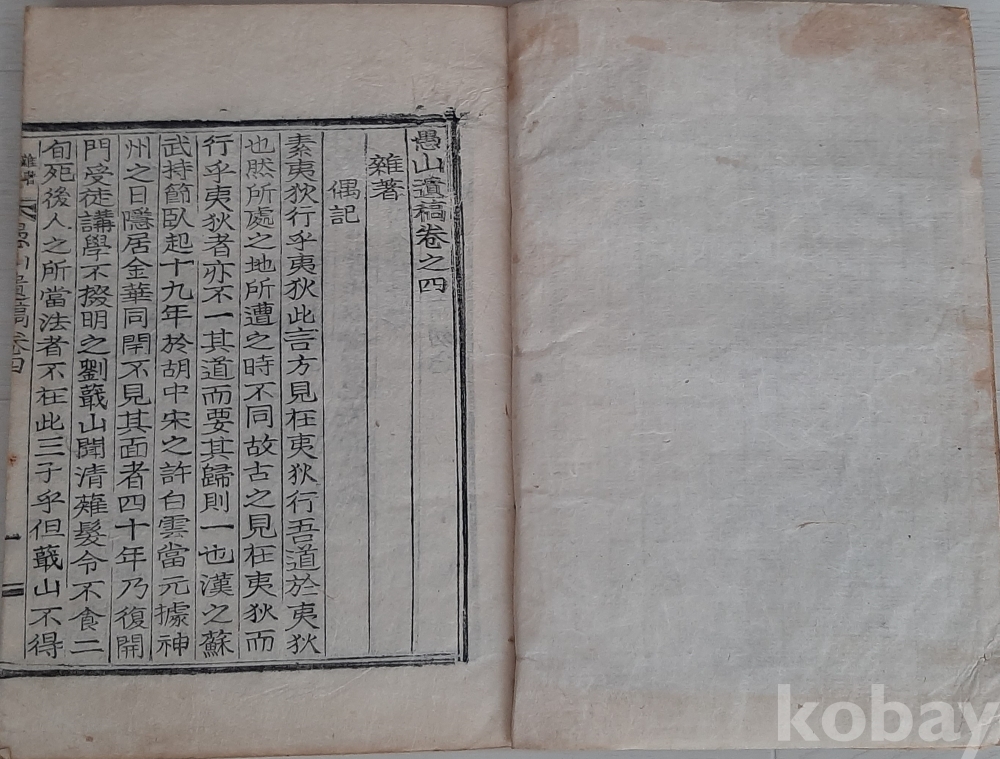 愚山遺稿卷之四
雜著
偶記
素夷狄行乎夷狄此言方見在夷狄行吾道於夷狄
也然所處之地所遭之時不同故古之見在夷狄而
行乎夷狄者亦不一其道而要其歸則一也漢之蘇
武持節臥起十九年於胡中宋之許白雲當元據神
州之日隱居金華同閈不見其面者四十年乃復開
門受徒講學不撥明之劉蕺山聞清薙髮令不食二
旬死後人之所當法者不在此三子乎但蕺山不得
雜著
愚山遺稿卷四
一
kobay